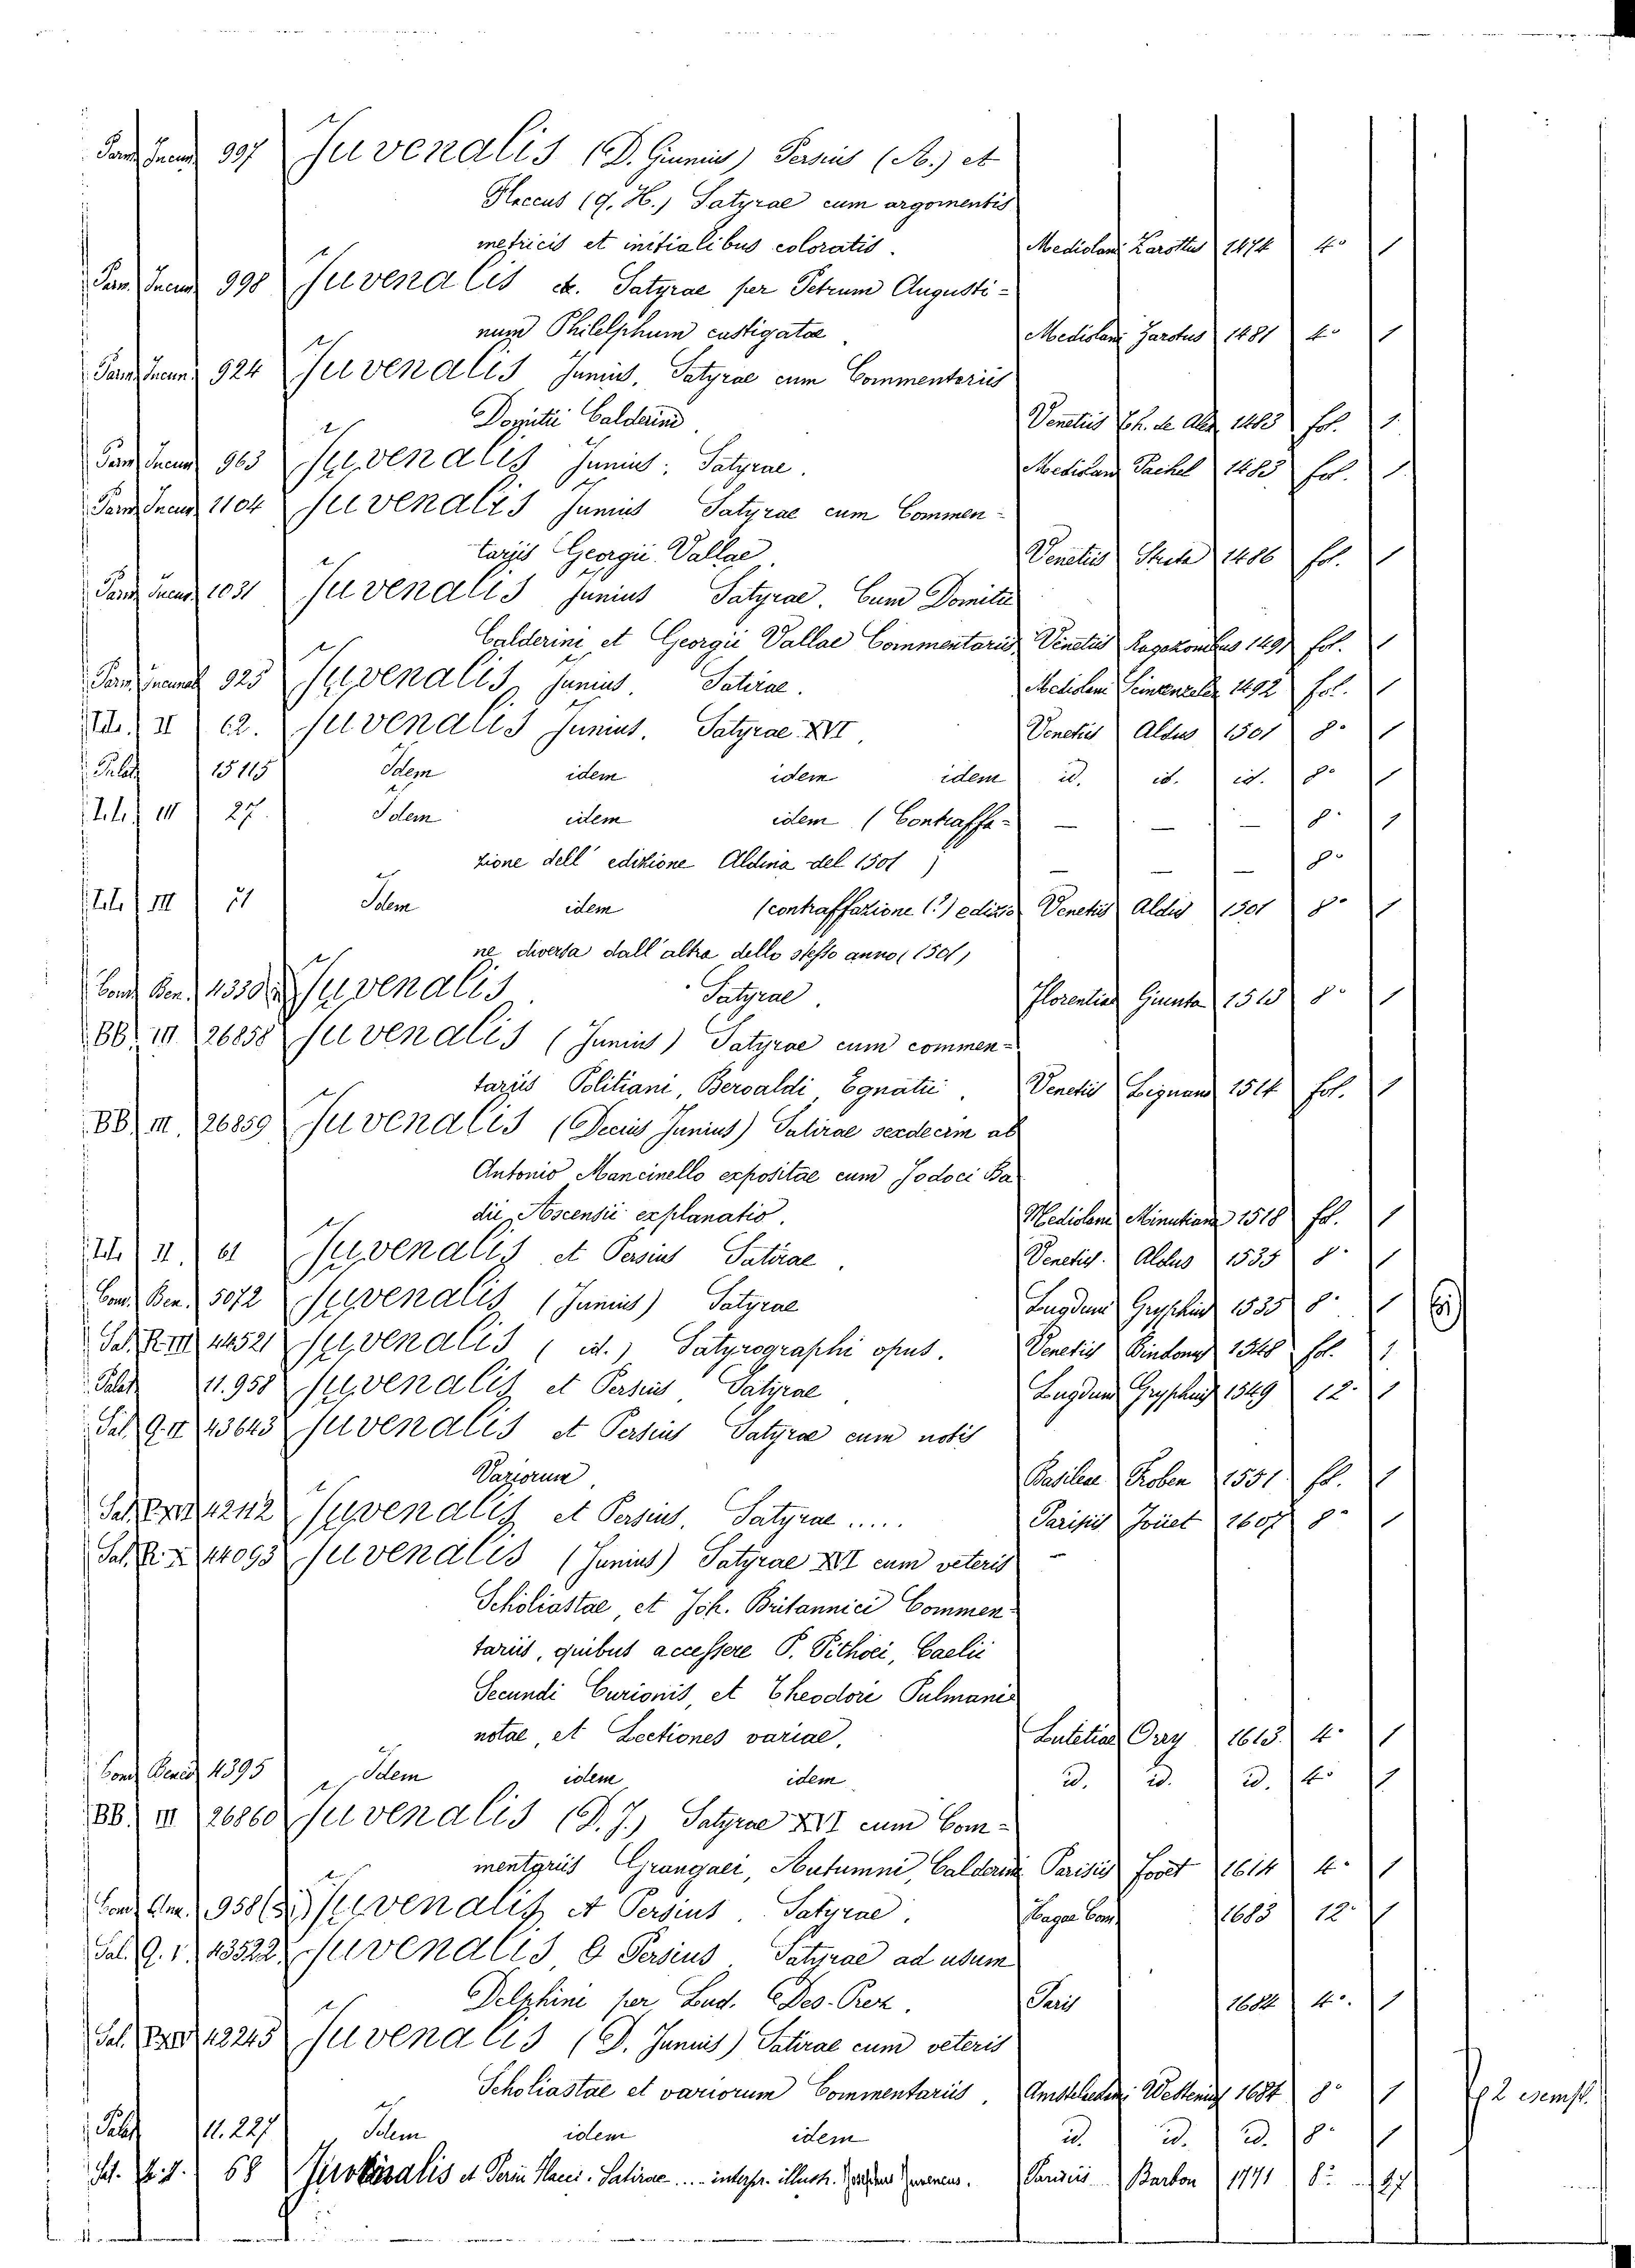 Parm Incun 997 Juvenalis (D. Giunius) Persius (A.) et
Flaccus (q. H.) Satyrae cum argomentis
metricis et initialibus coloratis. Mediolani Zarottus 1474 4° 1
Parm. Incun 998 Juvenalis etc. Satyrae per Petrum Augusti-
num Philelphum castigatae. Mediolani Zarotus 1481 4° 1
Parm. Incun 924 Juvenalis Junius, Satyrae cum Commentariis
Domitii Calderini. Venetiis 1483 fol. 1
Parm Incun 963 Juvenalis Junius. Satyrae. Mediolani Pachel 1483 fol. 1
Parm Incun 1104 Juvenalis Junius Satyrae cum Commen-
tariis Georgii Vallae. Venetiis Strata 1486 fol. 1
Parm Incun 1031 Juvenalis Junius Satyrae. Cum Domitii
Calderini et Georgii Vallae Commentariis Venetiis Ragazonibus 1491 fol. 1
Parm 925 Juvenalis, Junius Satirae. Mediolani Scinzenzeler 1492 fol. 1
II 62. Juvenalis Junius. Satyrae XVI Venetiis Aldus 1501 8° 1
Palat 15115 Idem idem idem idem id. id. id. 8° 1
III 27. Idem idem idem (Contraffa- — — — 8° 1
zione dell' edizione Aldina del 1501) — — — 8°
III 21 Idem idem (contraffazione (?) edizio Venetiis Aldus 1501 8° 1
ne diversa dall'altra dello stesso anno (1501)
Cond Ben. 4330 Juvenalis Satyrae. Florentiae Giunta 1513 8° 1
BB. III 26858 Juvenalis (Junius) Satyrae cum commen-
tariis Politiani, Beroaldi Egnatii. Venetiis 1514 fol. 1
BB III. 26859 Juvenalis (Decius Junius) Satirae sexdecim ab
Antonio Mancinello expositae cum Jodoci Ba
dii Ascensii explanatio. Mediolani Minutiani 1518 fol. 1
II. 61 Juvenalis et Persius Satirae. Venetiis. Aldus 1535 8° 1
Cond. Ben. 5072 Juvenalis (Junius) Satyrae Lugduni Gryphius 1535 8° 1
Sal. R. III 44521 Juvenalis (id.) Satyrographi opus. Venetiis Bindonus 1548 fol. 1
Palat 11.958 Juvenalis et Persius Satyrae. Lugduni Gryphius 1549 12° 1
Sal. Q. II 43643 Juvenalis et Persius Satyrae cum notis
Variorum. Basileae Froben 1551 fol. 1
Juvenalis et Persius. Satyrae ..... Parisiis Joüet 1607 8° 1
Sal. R. X 44093 Juvenalis (Junius) Satyrae XVI cum veteris
Scholiastae, et Joh. Britannici Commen-
tariis, quibus accessere P. Pithoei, Caelii
Secundi Curionis, et Theodori Pulmanis
notae, et Lectiones variae. Lutetiae Orry 1613. 4° 1
Cond Bened 4395 Idem idem idem id. id. id. 4° 1
BB. III 26860 Juvenalis (D. J.) Satyrae XVI cum Com-
mentariis Grangaei, Autumni, Calderini Parisiis Foüet 1614 4° 1
Cond Ben. 958 Juvenalis et Persius. Satyrae. Hagae Com 1683 12° 1
Sal. Q. I. 43522 Juvenalis & Persius. Satyrae ad usum
Delphini per Lud. Des-Prez. Paris 1684 4°. 1
Sal. 42245 Juvenalis (D. Junius) Satirae cum veteris
Scholiastae et variorum Commentariis. Amstelaedami Westenius 1684 8° 1 2 esempl.
Palat 11.227 Idem idem idem id. id. id. 8° 1
68 Juvenalis et Persii Flacci. Satirae .... interpr. illustr. Parisiis Barbou 1771 8°